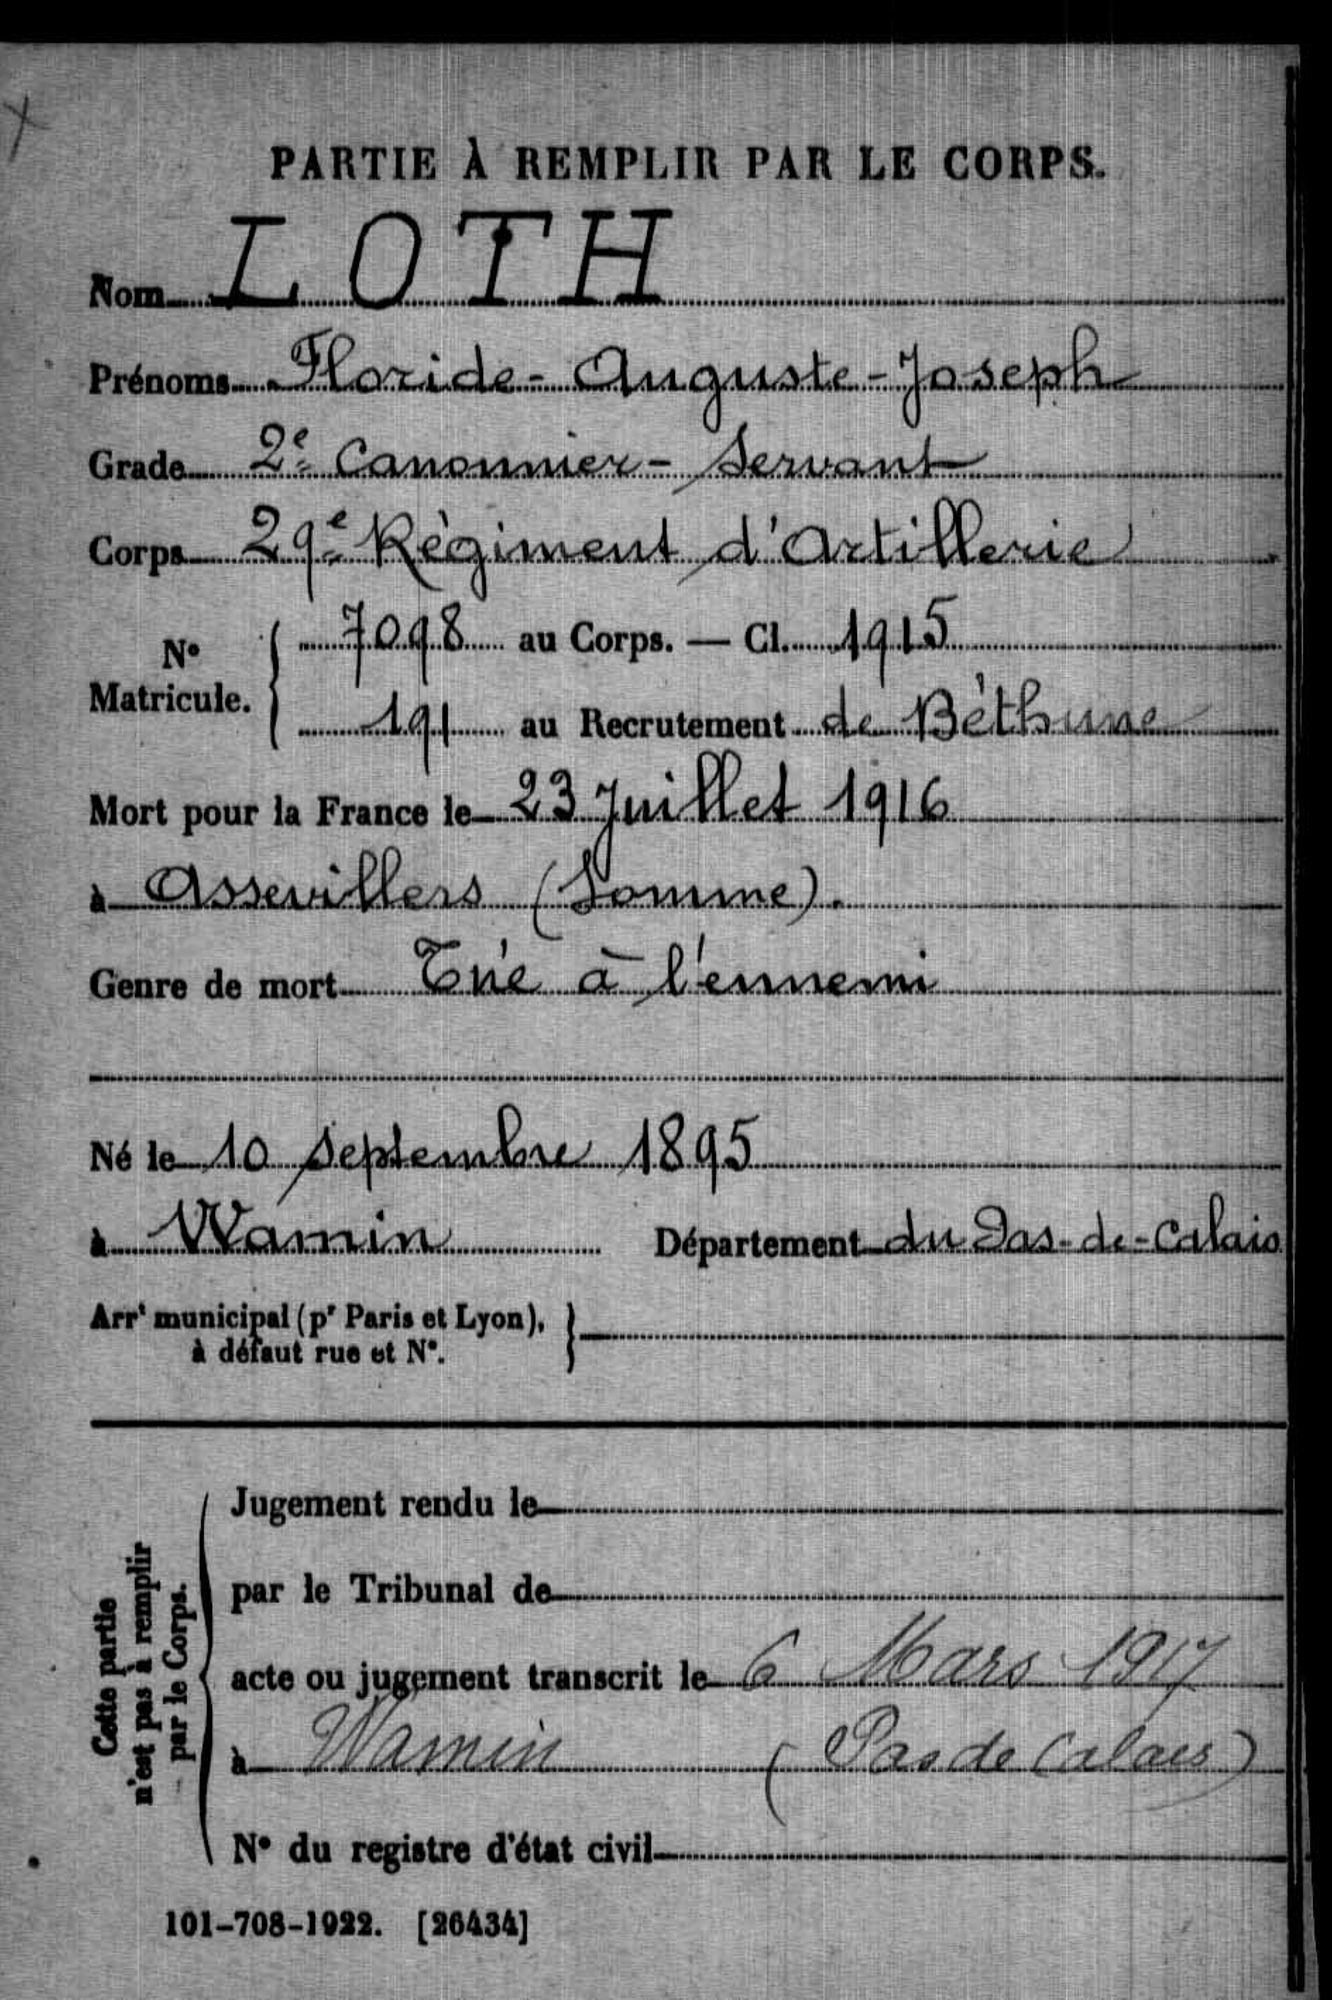 PARTIE À REMPLIR PAR LE CORPS.
Nom LOTH
Prénoms Floride-Auguste-Joseph
Grade 2e Canonnier-Servant
Corps 29e Régiment d'Artillerie
N° Matricule. 7098 au Corps. — Cl. 1915
191 au Recrutement de Béthune
Mort pour la France le 23 Juillet 1916
à Assevillers (Somme).
Genre de mort Tué à l'ennemi
Né le 10 Septembre 1895
à Wamin Département du Pas-de-Calais
Arrt municipal (pr Paris et Lyon),
à défaut rue et N°.
Cette partie
n'est pas à remplir
par le Corps.
Jugement rendu le
par le Tribunal de
acte ou jugement transcrit le 6 Mars 1917
à Wamin (Pas de Calais)
N° du registre d'état civil
101-708-1922. [26434]